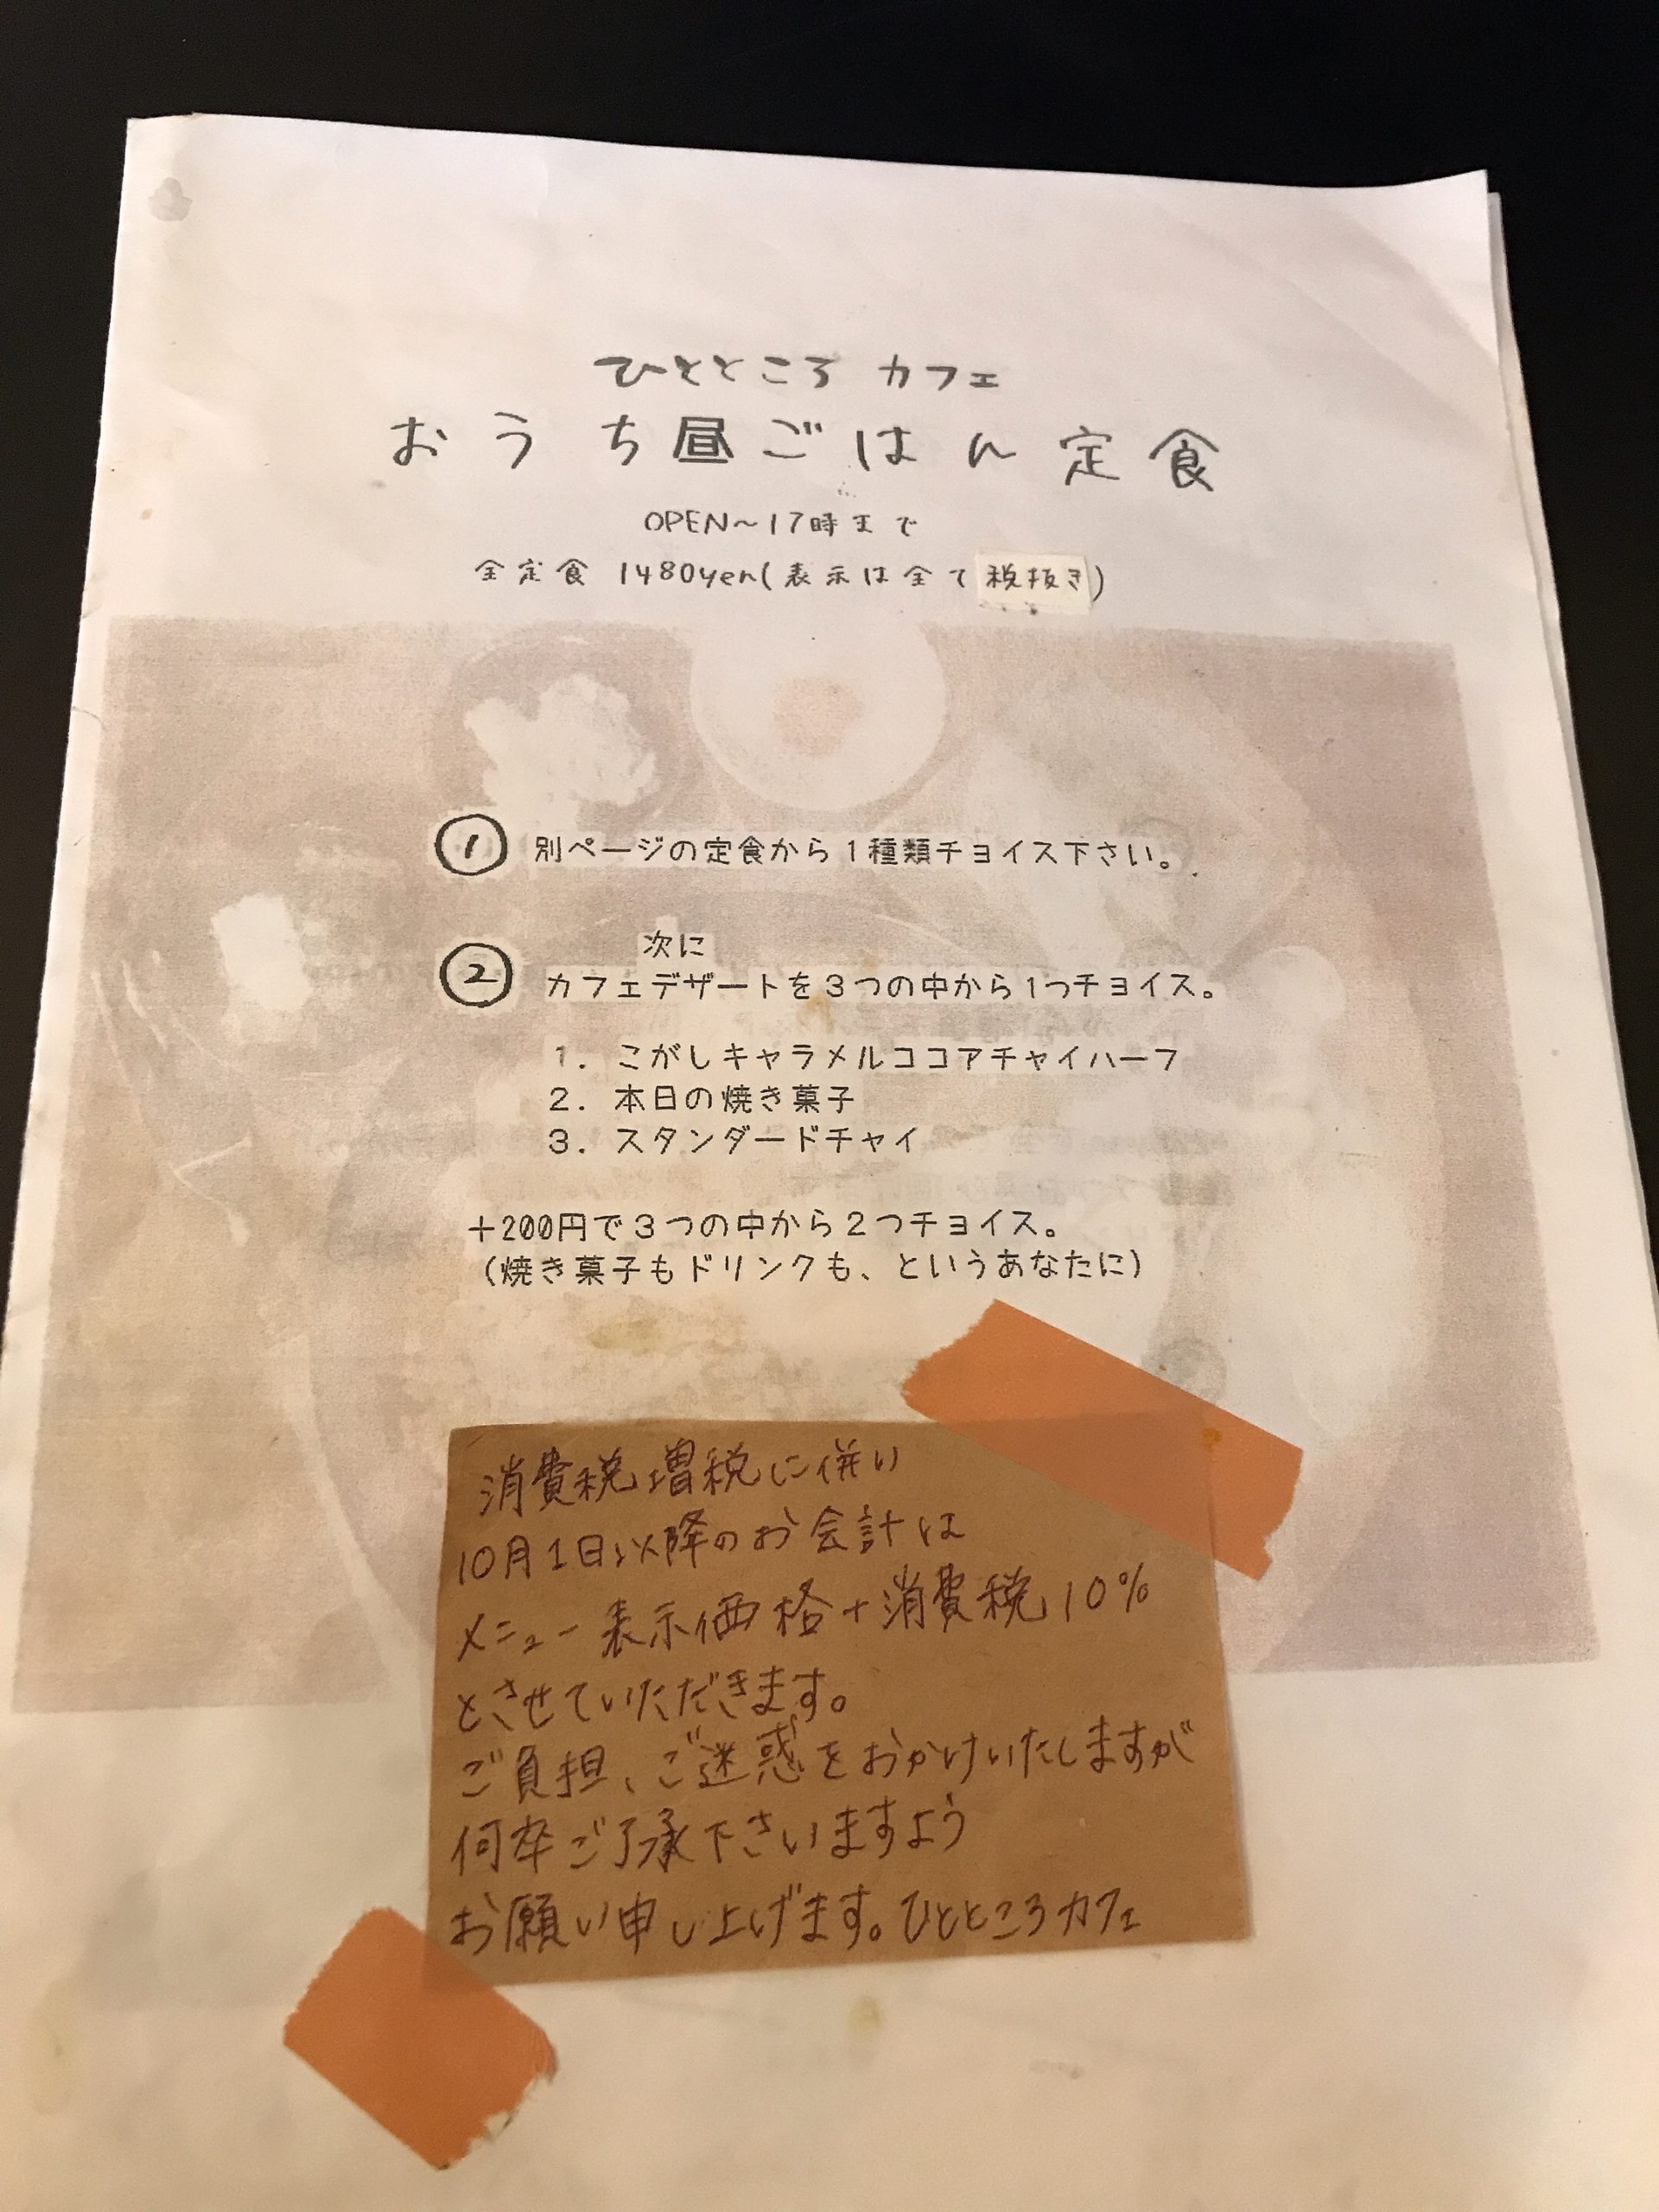 ひとところ カフェ
おうち昼ごはん定食
OPEN～17時まで
全定食 1480yen(表示は全て税抜き)
① 別ページの定食から1種類チョイス下さい。
次に
② カフェデザートを3つの中から1つチョイス。
1. こがしキャラメルココアチャイハーフ
2. 本日の焼き菓子
3. スタンダードチャイ
+200円で3つの中から2つチョイス。
(焼き菓子もドリンクも、というあなたに)
消費税増税に併い
10月1日以降のお会計は
メニュー表示価格+消費税10%
とさせていただきます。
ご負担、ご迷惑をおかけいたしますが
何卒ご了承下さいますよう
お願い申し上げます。ひとところカフェ